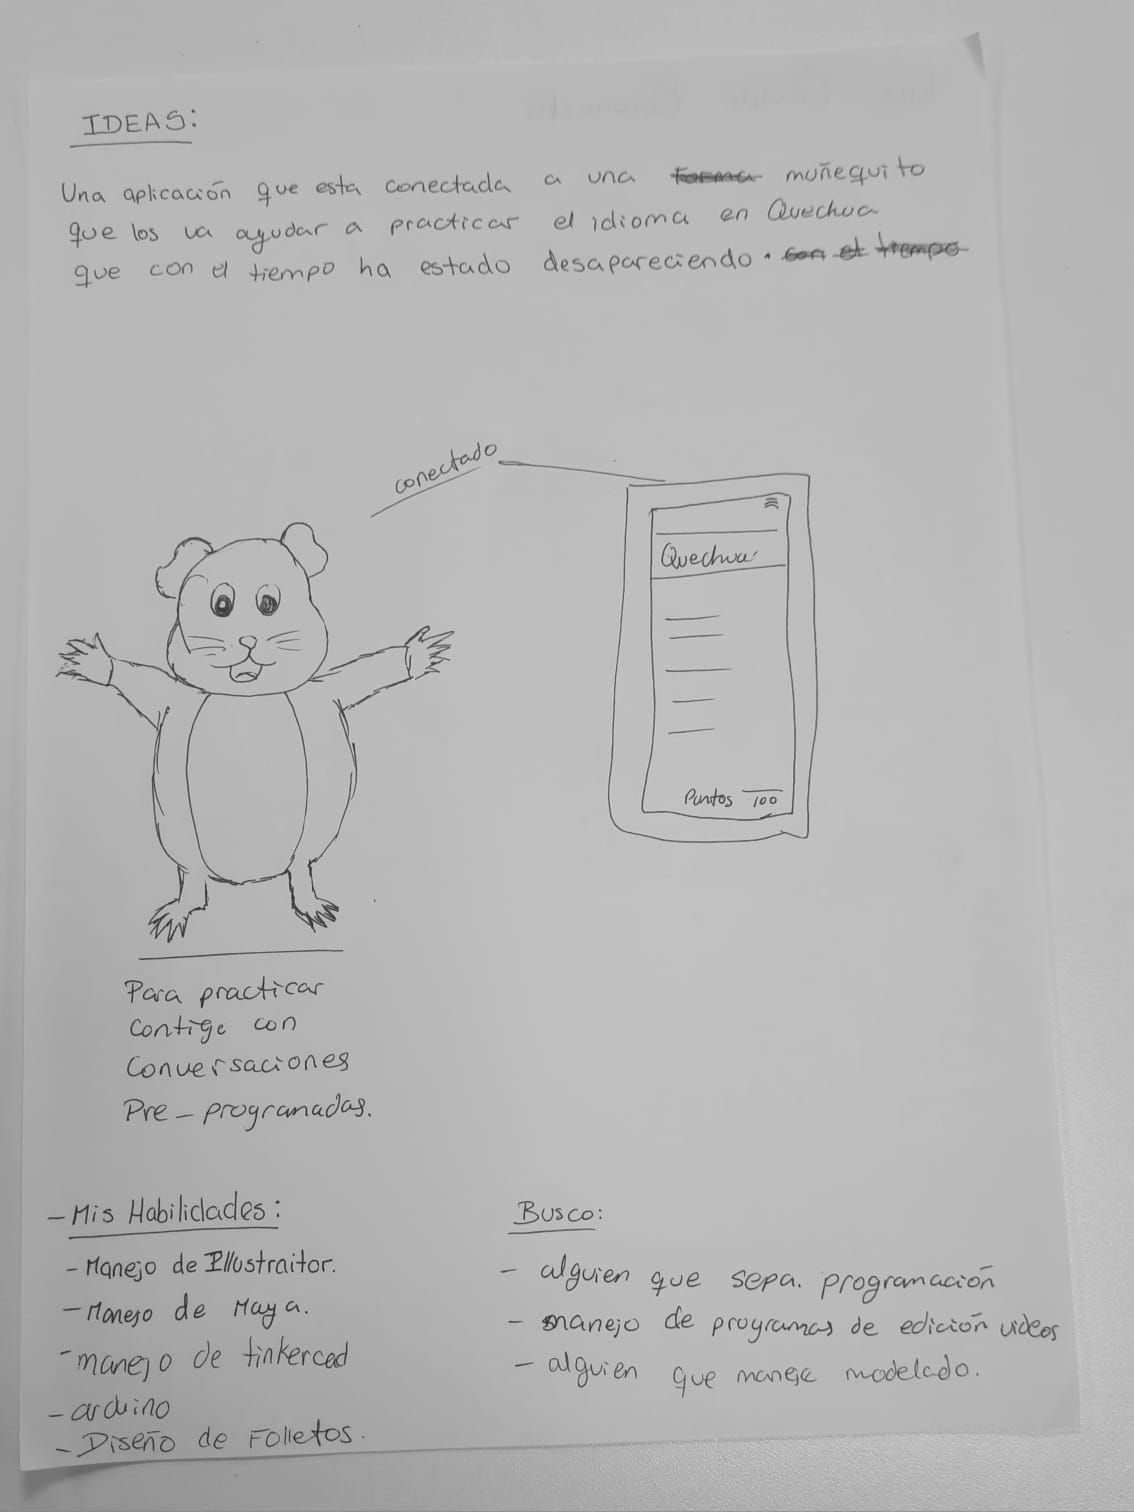 IDEAS:
Una aplicación que esta conectada a una forma muñequito
que los va ayudar a practicar el idioma en Quechua
que con el tiempo ha estado desapareciendo. con el tiempo
conectado
Quechua
Puntos /100
Para practicar
contigo con
Conversaciones
Pre-programadas.
- Mis Habilidades:
- Manejo de Illustraitor.
- Manejo de Maya.
- manejo de tinkerced
- arduino
- Diseño de Folletos.
Busco:
- alguien que sepa. programación
- manejo de programas de edición videos
- alguien que maneje modelado.